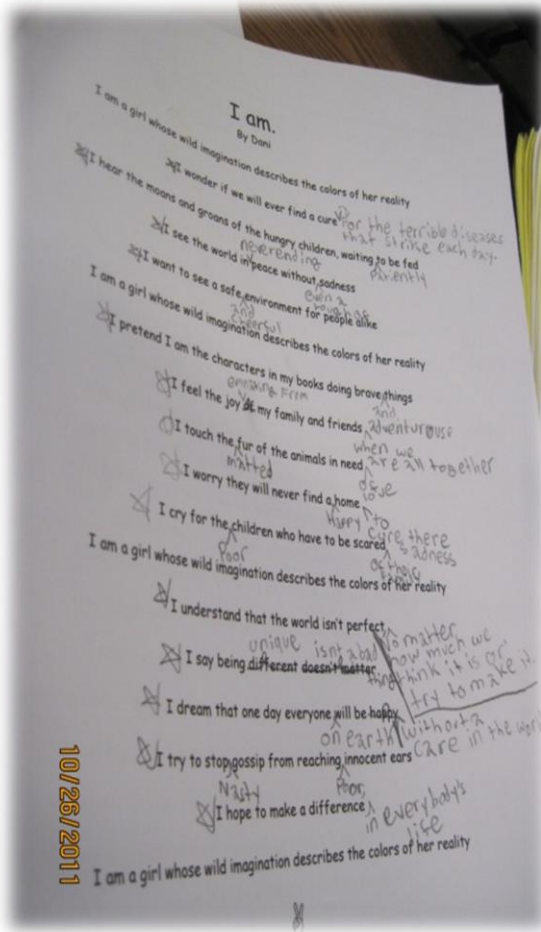 I am.
By Dani
I am a girl whose wild imagination describes the colors of her reality
I wonder if we will ever find a cure for the terrible diseases
that strike each day.
I hear the moans and groans of the hungry children, waiting to be fed
patiently
I see the world in peace without sadness
neverending
even a
touch of
I want to see a safe environment for people alike
and
cheerful
I am a girl whose wild imagination describes the colors of her reality
I pretend I am the characters in my books doing brave things
and
adventurouse
I feel the joy my family and friends
From
when we
are all together
I touch the fur of the animals in need
matted
of
love
I worry they will never find a home
Happy
to
cure there
sadness
I cry for the children who have to be scared
Poor
of their
I am a girl whose wild imagination describes the colors of her reality
I understand that the world isn't perfect
No matter
how much we
think it is or
try to make it.
I say being different doesn't matter
unique isn't a bad
thing
I dream that one day everyone will be happy
on earth without a
care in the world
I try to stop gossip from reaching innocent ears
Nasty
Poor,
I hope to make a difference
in everybody's
life
I am a girl whose wild imagination describes the colors of her reality
10/26/2011